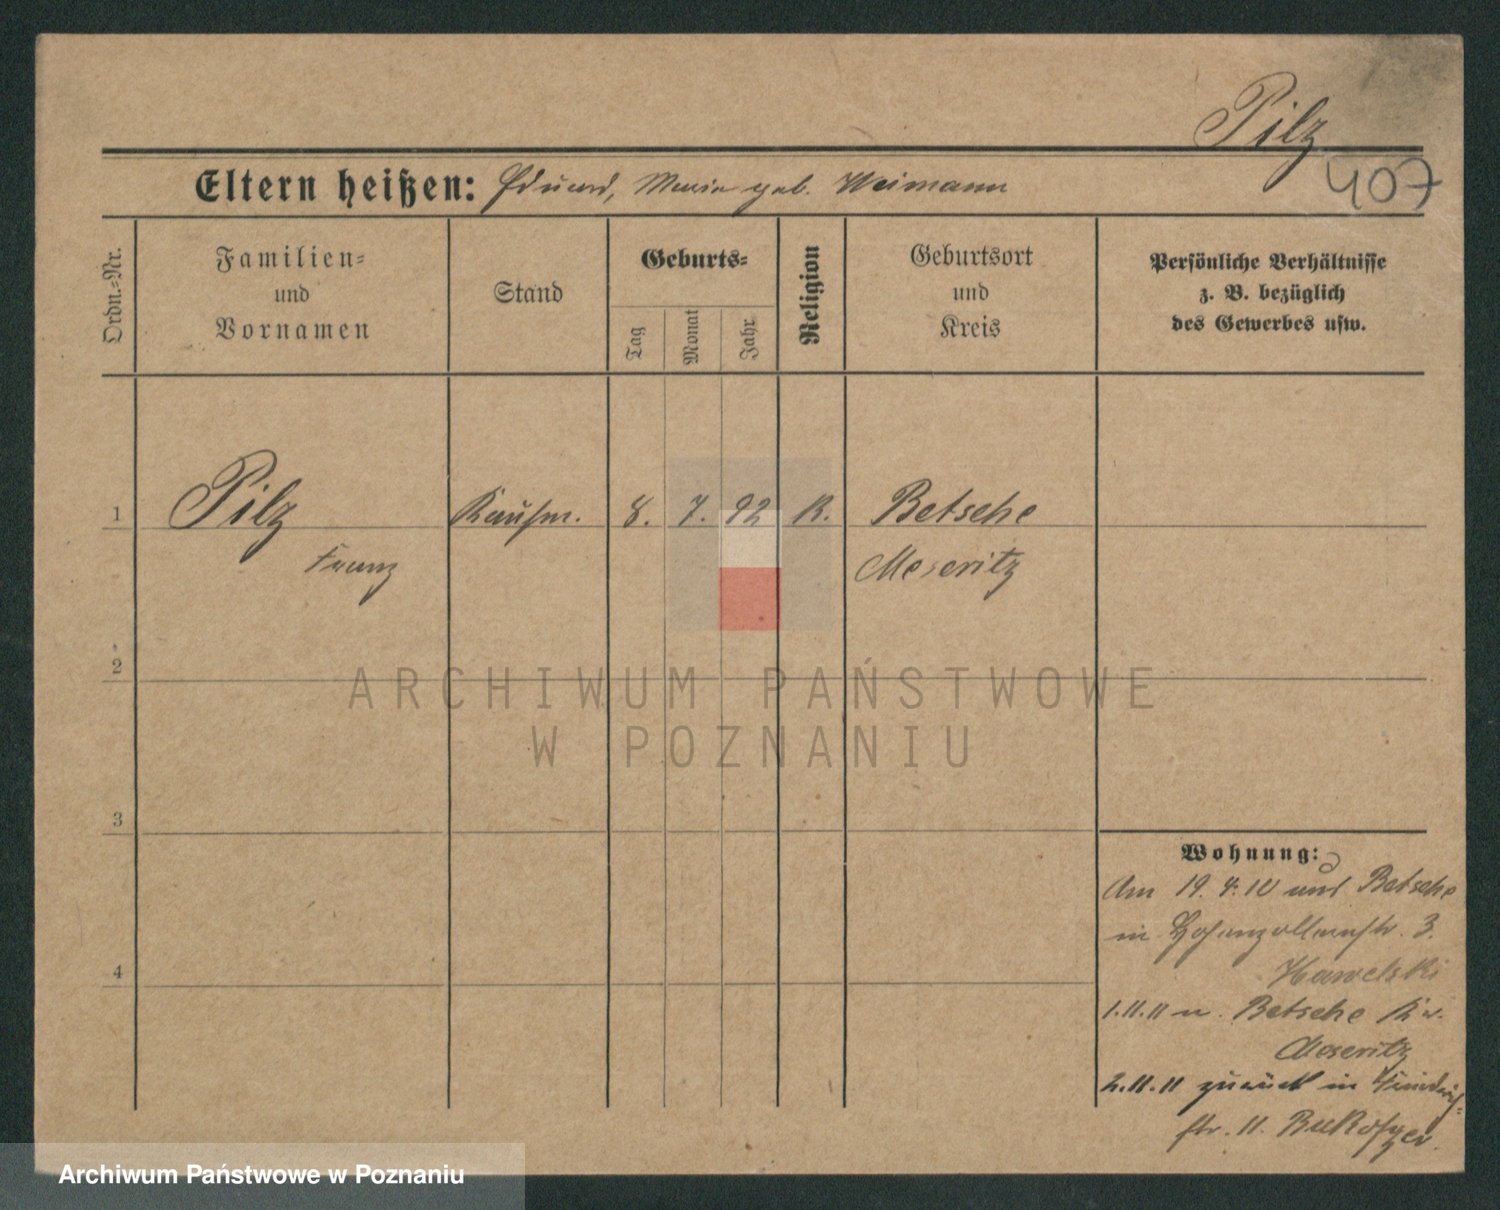 Pilz
407
Eltern heißen: Eduard, Maria geb. Weimann
Ordn.-Nr.
Familien-
und
Vornamen
Stand
Geburts-
Tag
Monat
Jahr
Religion
Geburtsort
und
Kreis
Persönliche Verhältnisse
z. B. bezüglich
des Gewerbes usw.
1 Pilz Kaufm. 8. 7. 92 K. Betsche
Franz Meseritz
2
3
4
Wohnung:
Am 19. 4. 10 aus Betsche
in Hohenzollernstr. 3.
Hawelski
1.11.11 n. Betsche Kr.
Meseritz
2.11.11 zurück in Friedrich-
str. 11.
ARCHIWUM PAŃSTWOWE
W POZNANIU
Archiwum Państwowe w Poznaniu